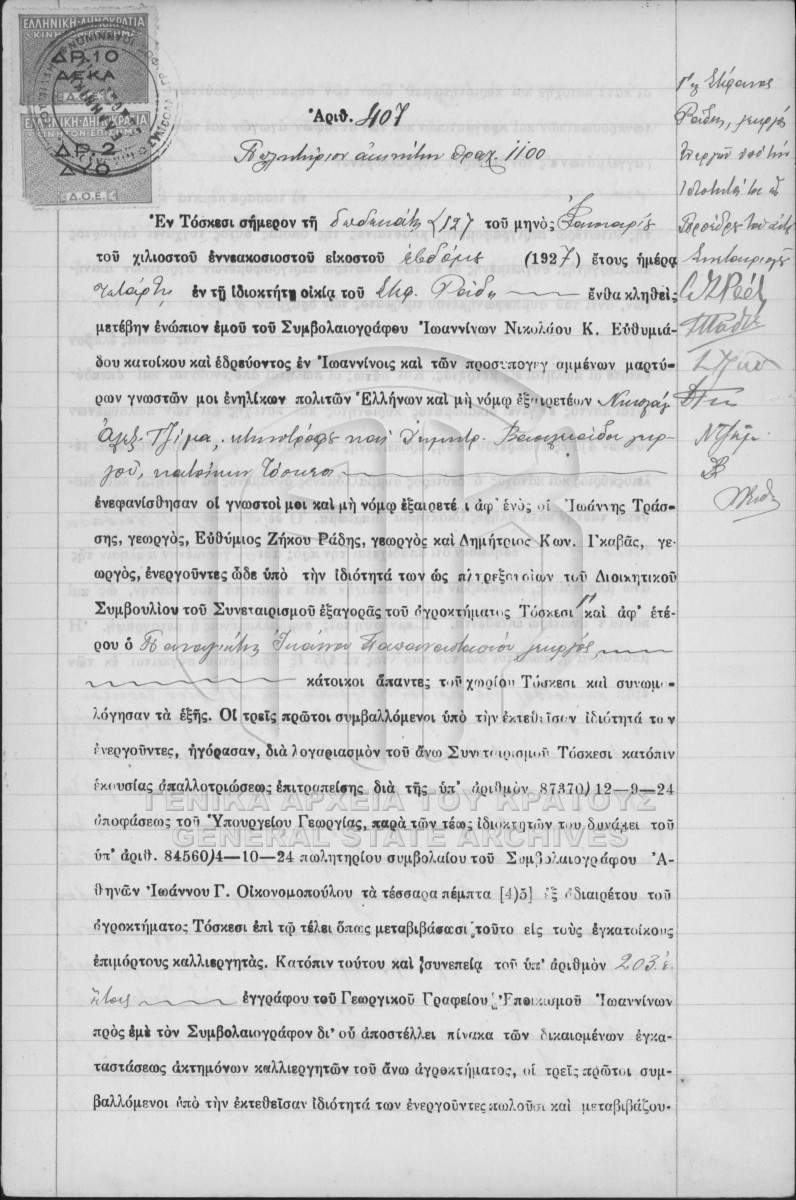 ΕΛΛΗΝΙΚΗ·ΔΗΜΟΚΡΑΤΙΑ
ΚΙΝΗΤΟΝ·ΕΠΙΣΗΜΑ
ΔΡ.10
ΔΕΚΑ
Δ.Ο.Ε.
ΕΛΛΗΝΙΚΗ·ΔΗΜΟΚΡΑΤΙΑ
ΚΙΝΗΤΟΝ·ΕΠΙΣΗΜΑ
ΔΡ.2
ΔΥΟ
Δ.Ο.Ε.
Ἀριθ. 407
Πωλητήριον ἀκινήτου δραχ. 1100
Ἐν Τόσκεσι σήμερον τῇ δωδεκάτῃ (12) τοῦ μηνὸς
τοῦ χιλιοστοῦ ἐννεακοσιοστοῦ εἰκοστοῦ ἑβδόμου (1927) ἔτους ἡμέρᾳ
Τετάρτῃ ἐν τῇ ἰδιοκτήτῳ οἰκίᾳ τοῦ Στεφ. Ράδη ἔνθα κληθεὶς
μετέβην ἐνώπιον ἐμοῦ τοῦ Συμβολαιογράφου Ἰωαννίνων Νικολάου Κ. Εὐθυμιά-
δου κατοίκου καὶ ἑδρεύοντος ἐν Ἰωαννίνοις καὶ τῶν προσυπογεγραμμένων μαρτύ-
ρων γνωστῶν μοι ἐνηλίκων πολιτῶν Ἑλλήνων καὶ μὴ νόμῳ ἐξαιρετέων Νικολάου
Ἀλεξ. Τζίμα, κτηνοτρόφου καὶ Δημητρ. Βασιλειάδου γεωρ-
γοῦ, κατοίκων Τόσκεσι
ἐνεφανίσθησαν οἱ γνωστοί μοι καὶ μὴ νόμῳ ἐξαιρετέοι ἀφ' ἑνὸς οἱ Ἰωάννης Τράσ-
σης, γεωργός, Εὐθύμιος Ζήκου Ράδης, γεωργὸς καὶ Δημήτριος Κων. Γκαβᾶς, γε-
ωργός, ἐνεργοῦντες ὧδε ὑπὸ τὴν ἰδιότητά των ὡς πληρεξουσίων τοῦ Διοικητικοῦ
Συμβουλίου τοῦ Συνεταιρισμοῦ ἐξαγορᾶς τοῦ ἀγροκτήματος Τόσκεσι καὶ ἀφ' ἑτέ-
ρου ὁ Παναγιώτης Ἰωάννου Παπαναστασίου γεωργός,
κάτοικοι ἅπαντες τοῦ χωρίου Τόσκεσι καὶ συνωμο-
λόγησαν τὰ ἑξῆς. Οἱ τρεῖς πρῶτοι συμβαλλόμενοι ὑπὸ τὴν ἐκτεθεῖσαν ἰδιότητά των
ἐνεργοῦντες, ἠγόρασαν, διὰ λογαριασμὸν τοῦ ἄνω Συνεταιρισμοῦ Τόσκεσι κατόπιν
ἑκουσίας ἀπαλλοτριώσεως ἐπιτραπείσης διὰ τῆς ὑπ' ἀριθμὸν 87370)12—9—24
ἀποφάσεως τοῦ Ὑπουργείου Γεωργίας, παρὰ τῶν τέως ἰδιοκτητῶν του δυνάμει τοῦ
ὑπ' ἀριθ. 84560)4—10—24 πωλητηρίου συμβολαίου τοῦ Συμβολαιογράφου Ἀ-
θηνῶν Ἰωάννου Γ. Οἰκονομοπούλου τὰ τέσσαρα πέμπτα [4)5] ἐξ ἀδιαιρέτου τοῦ
ἀγροκτήματος Τόσκεσι ἐπὶ τῷ τέλει ὅπως μεταβιβάσωσι τοῦτο εἰς τοὺς ἐγκατοίκους
ἐπιμόρτους καλλιεργητάς. Κατόπιν τούτου καὶ συνεπείᾳ τοῦ ὑπ' ἀριθμὸν 203
ἐγγράφου τοῦ Γεωργικοῦ Γραφείου Ἐποικισμοῦ Ἰωαννίνων
πρὸς ἐμὲ τὸν Συμβολαιογράφον δι' οὗ ἀποστέλλει πίνακα τῶν δικαιομένων ἐγκα-
ταστάσεως ἀκτημόνων καλλιεργητῶν τοῦ ἄνω ἀγροκτήματος, οἱ τρεῖς πρῶτοι συμ-
βαλλόμενοι ὑπὸ τὴν ἐκτεθεῖσαν ἰδιότητά των ἐνεργοῦντες πωλοῦσι καὶ μεταβιβάζου-
Στέφανος
Ράδης, γεωργὸς
ὑπὸ τὴν
ἰδιότητά του ὡς
Προέδρου τοῦ
Συνεταιρισμοῦ
ΓΕΝΙΚΑ ΑΡΧΕΙΑ ΤΟΥ ΚΡΑΤΟΥΣ
GENERAL STATE ARCHIVES